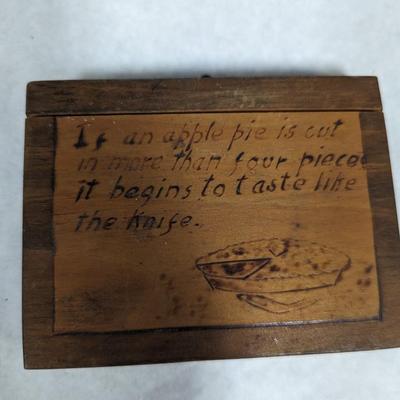 If an apple pie is cut
in more than four pieces
it begins to taste like
the Knife.